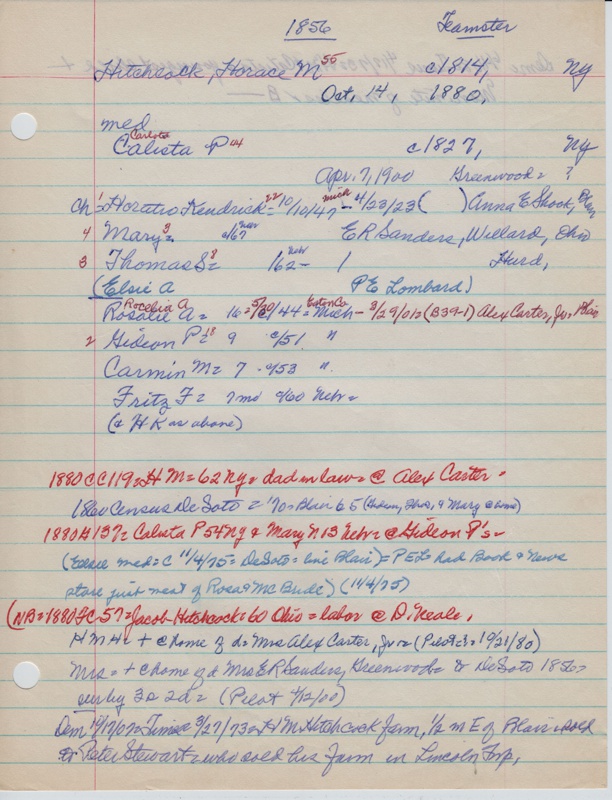 1856 Teamster
Hitchcock, Horace M 55 c1814, NY
Oct, 14, 1880,
med
Carlota
Calista P 44 c1827, NY
Apr. 7, 1900 Greenwood = ?
Ch = 1 Horatio Kendrick = 22 10/10/47 Mich - 4/23/23 ( ) Anna E Shook,
4 Mary = 3 c/67 Neb E R Sanders, Willard, Ohio
3 Thomas S = 8 '62 - Neb 1 Hurd,
(Elsie A P E Lombard)
Rocelia A
Rosalie A = 16 = 5/30/44 = Mich - Eaton Co 3/29/01 = (B39-1) Alex Carter, Jr = Blair
2 Gideon P = 18 9 c/51 "
Carmin M = 7 - c/53 "
Fritz F = 7 mo c/60 Nebr =
(& H K as above)
1880 CC119 = H M = 62 NY = dad in law = @ Alex Carter =
1860 Census De Soto = '70 = Blair 65 ( Thos, & Mary @ home)
1880 H 137 = Calista P 54 NY & Mary N 13 Nebr = @ Gideon P's =
(Elsie med = C 11/4/75 = DeSoto = line Blair) = P E L = had Book & News
store just west of Rosa & McBride) (11/4/75)
(NB = 1880 GC 57 = Jacob Hitchcock = 60 Ohio = labor @ D. Neale,
H M H = + @ home of d = Mrs Alex Carter, Jr = (Pilot = 10/21/80)
Mrs = + @ home of d Mrs E R Sanders, Greenwood = to DeSoto 1856 =
surby 3s 2d = (Pilot 4/12/00)
Dem 1907 = Times 3/27/73 = H M Hitchcock farm, 1/2 m E of Blair = sold
to Peter Stewart = who sold his farm in Lincoln Twp,